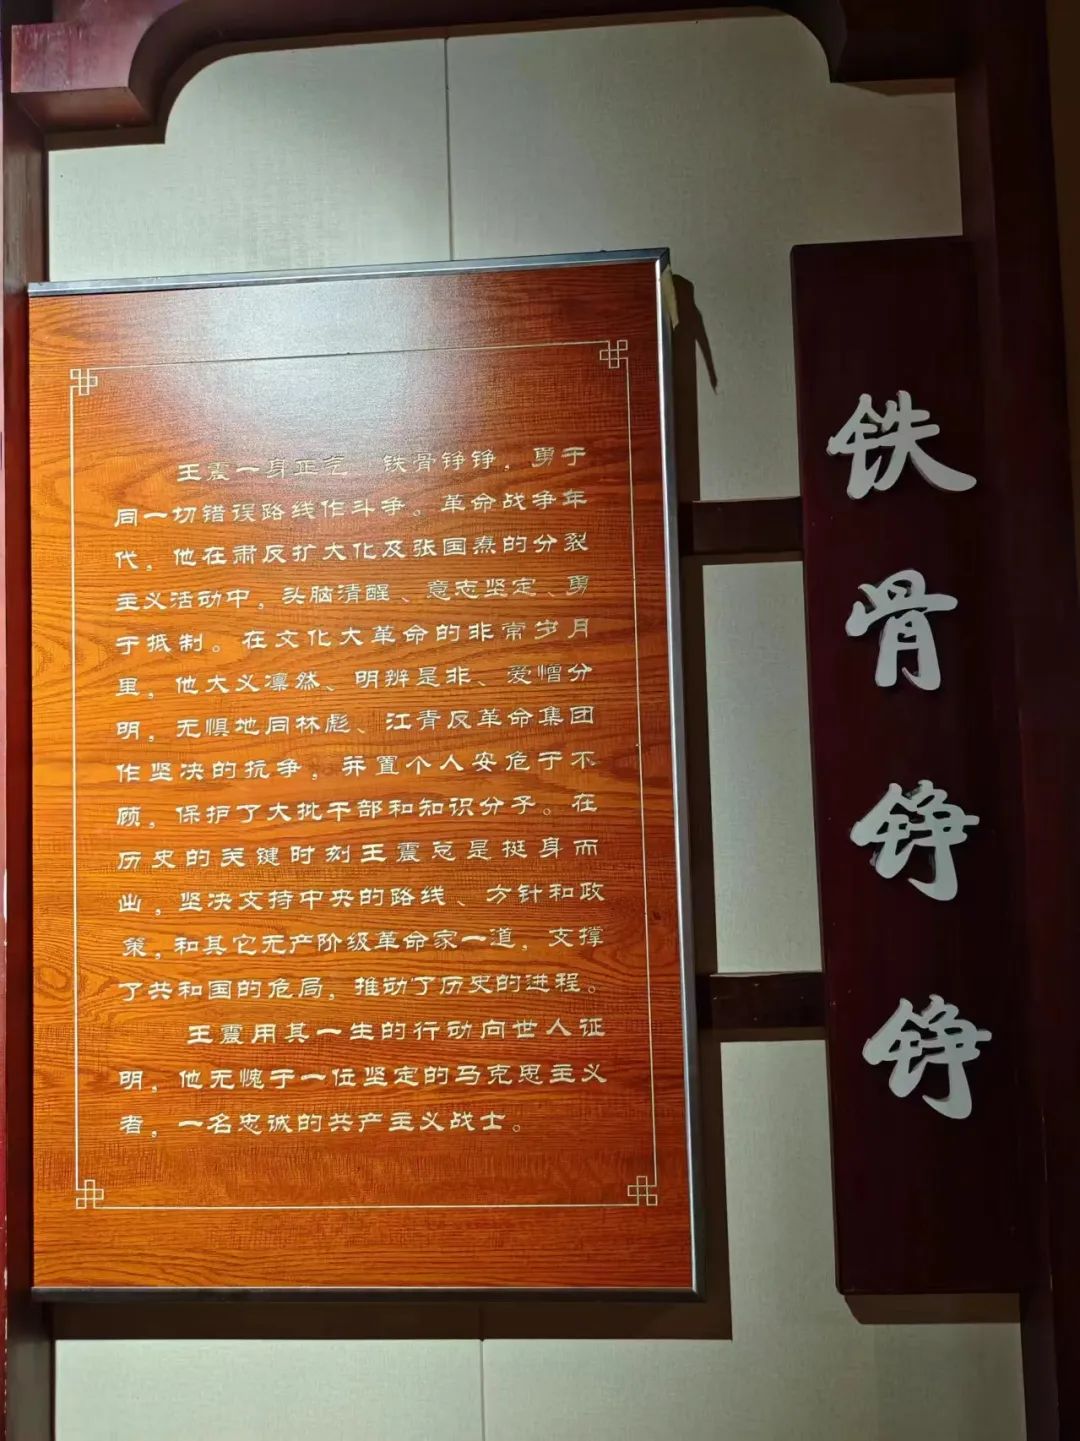 王震一身正气 铁骨铮铮，勇于
同一切错误路线作斗争。革命战争年
代，他在肃反扩大化及张国焘的分裂
主义活动中，头脑清醒、意志坚定、勇
于抵制。在文化大革命的非常岁月
里，他大义凛然、明辨是非、爱憎分
明，无惧地同林彪、江青反革命集团
作坚决的抗争，并置个人安危于不
顾，保护了大批干部和知识分子。在
历史的关键时刻王震总是挺身而
出，坚决支持中央的路线、方针和政
策，和其它无产阶级革命家一道，支撑
了共和国的危局，推动了历史的进程。
王震用其一生的行动向世人证
明，他无愧于一位坚定的马克思主义
者，一名忠诚的共产主义战士。
铁骨铮铮